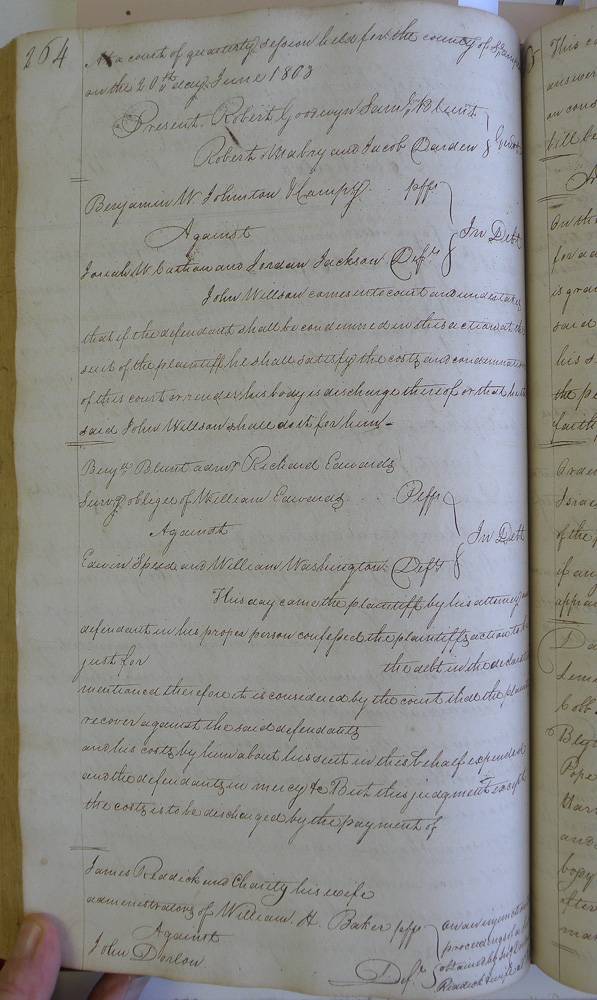 264
At a court of quarterly session held for the county of
on the 20th day June 1803
Present. Robert Goodwyn Saml Blunt
Robert Mabry and Jacob Darden
Benjamin W Johnston & Campy. plffs
Against
In Debt
Josiah W Cathan and Jordan Jackson Defts
John Willson comes into court and undertakes
that if the defendants shall be condemned in this action at the
suit of the plaintiff he shall satisfy the costs and condemnation
of this court or render his body in discharge thereof or that he the
said John Willson shall do it for him
Benjn Blunt admr Richard Edwards
Survg obligee of William Edwards Plffs
Against
In Debt
Edwin Speed and William Washington Defts
This day came the plaintiff by his attorney and
defendant in his proper person confessed the plaintiffs action to be
just for the debt in the declaration
mentioned therefore it is considered by the court that the plaintiff
recover against the said defendants
and his costs by him about his suit in this behalf expended
and the defendants in mercy &c But this judgment except
the costs is to be discharged by the payment of
James Reddick and Charity his wife
administrators of William H. Baker plffs
Against
John Dorlon
Deft
on an injunction
proceedings
obtained by
Reddick
This
answer
on
bill be
On the
for a
is gra
said
his s
the p
faith
Orde
Israe
of the
of an
appra
Da
Lem
Cobb
Pope
Har
and
copy
after
ma